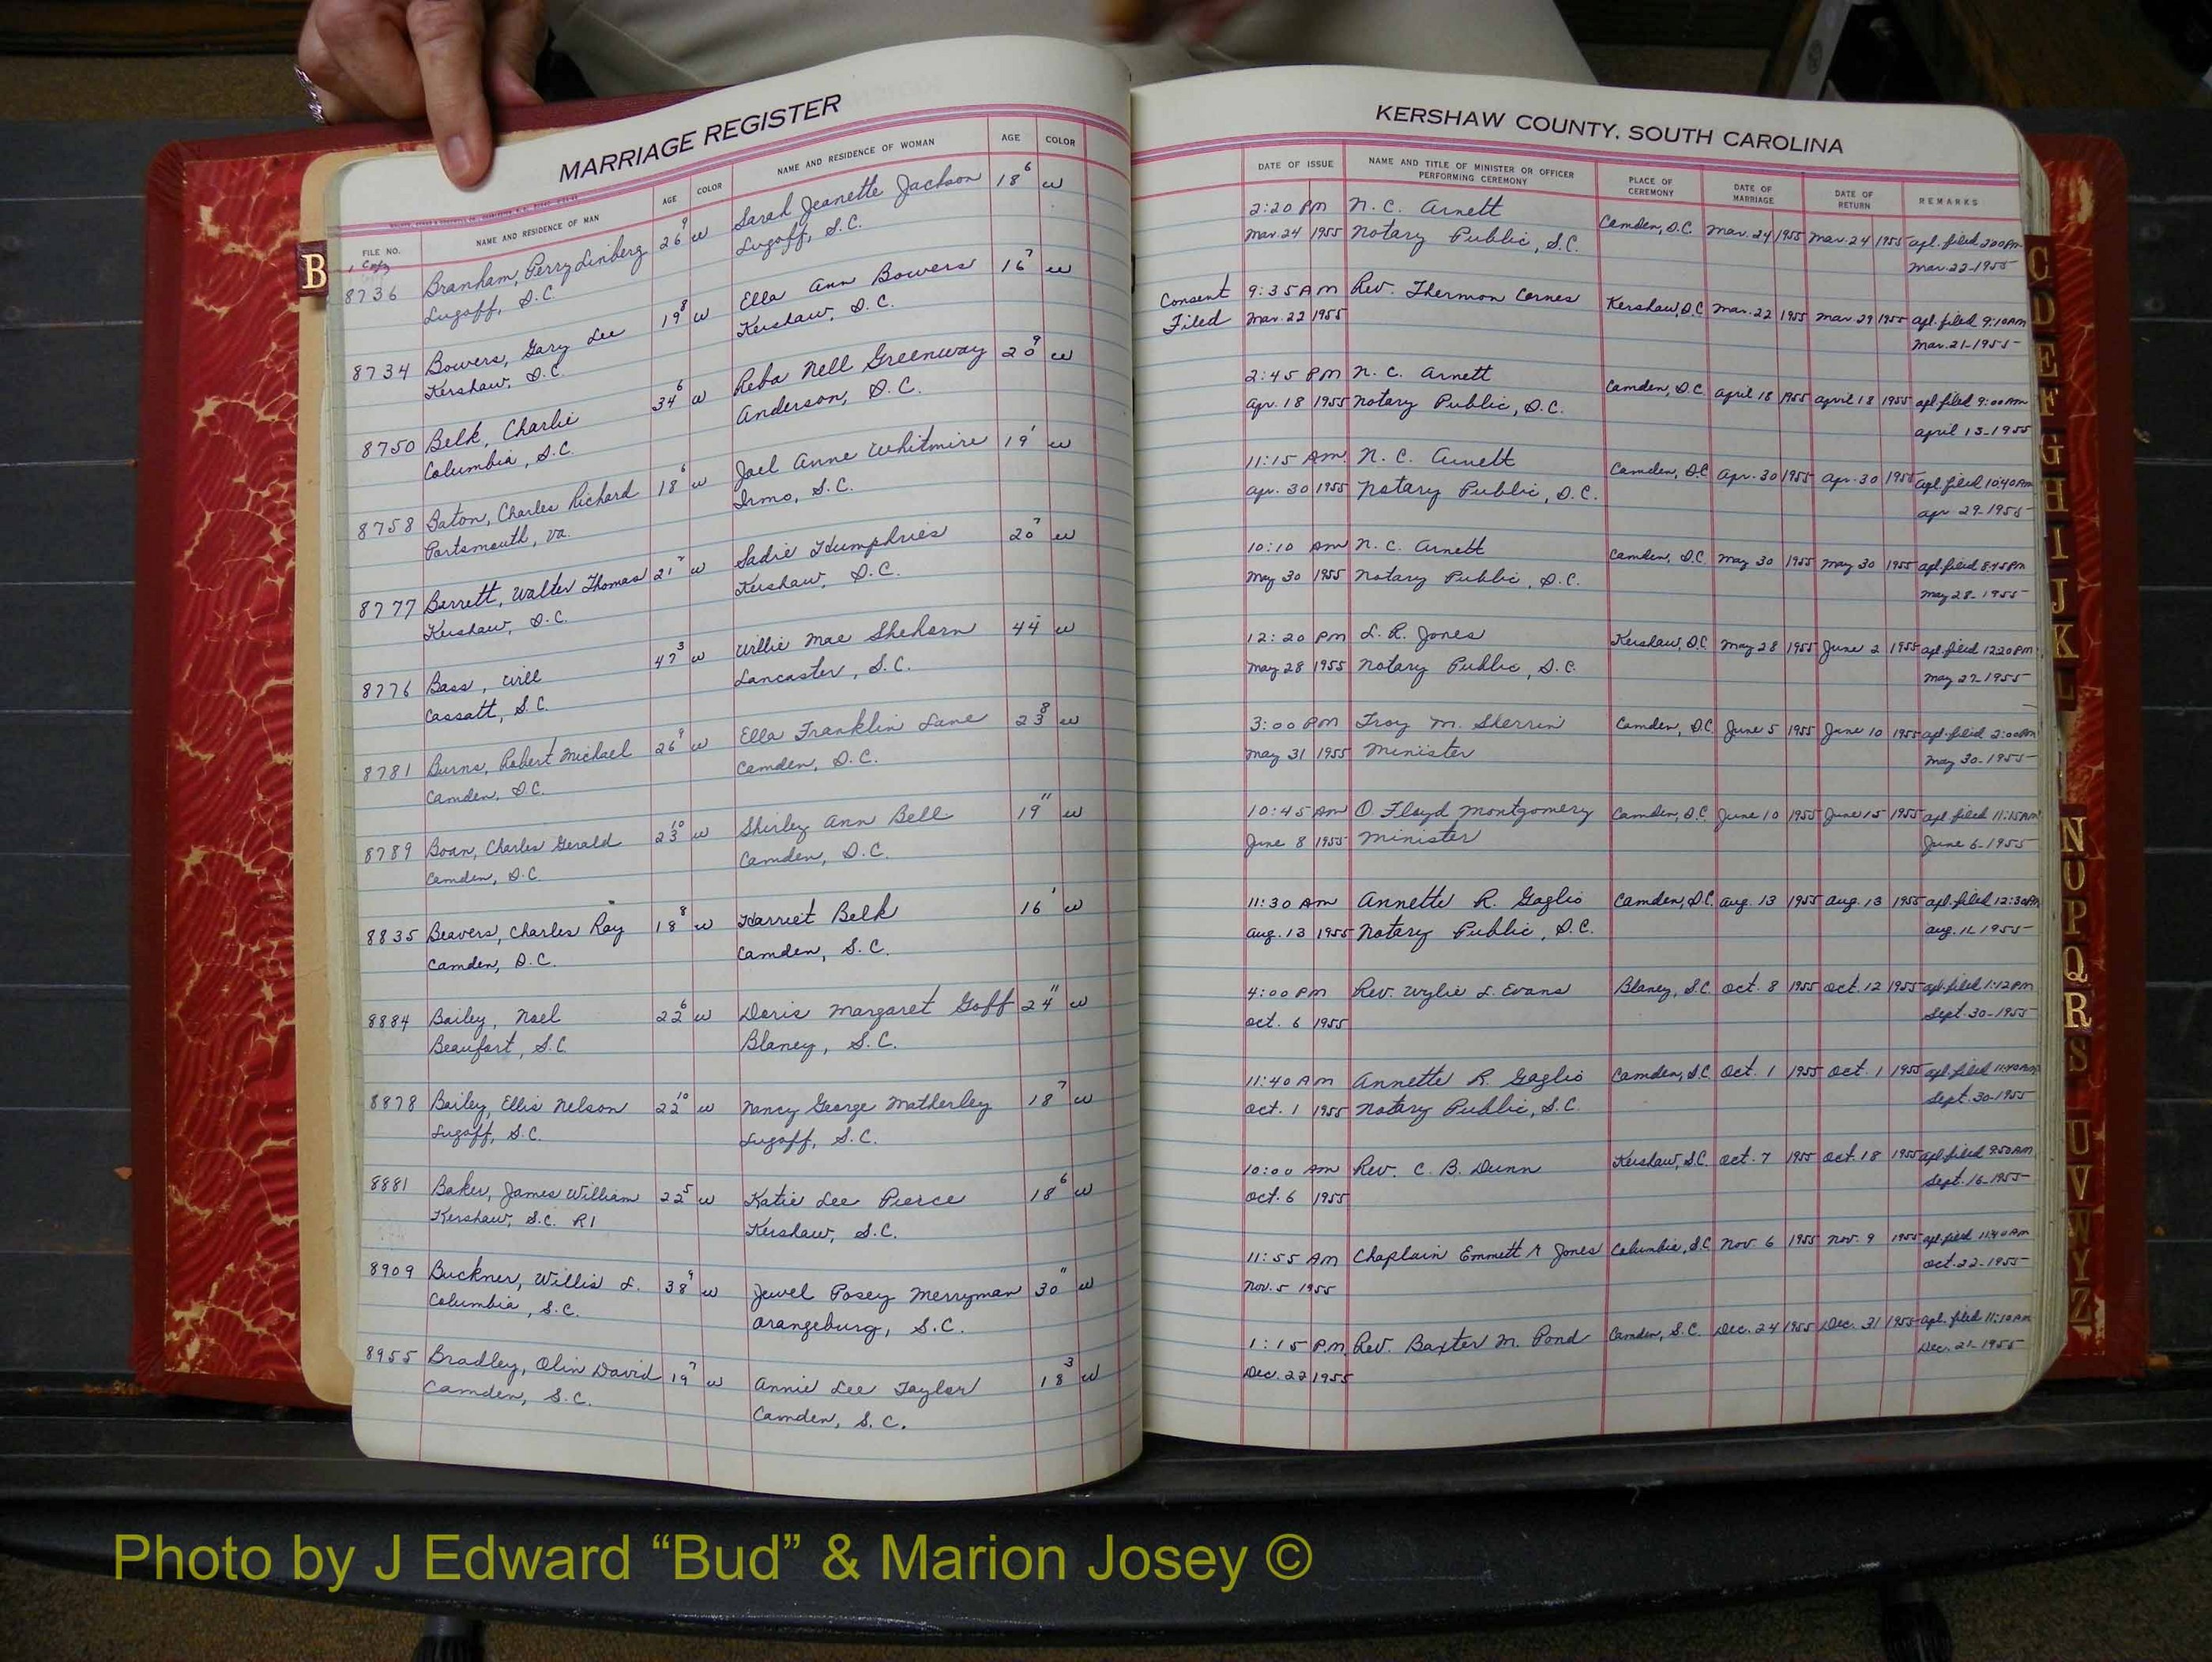 MARRIAGE REGISTER
FILE NO. NAME AND RESIDENCE OF MAN AGE COLOR NAME AND RESIDENCE OF WOMAN AGE COLOR
1 Copy
8736 Branham, Perry Linberg 26 9 W Sarah Jeanette Jackson 18 6 W
Lugoff, S.C. Lugoff, S.C.
8734 Bowers, Gary Lee 19 8 W Ella Ann Bowers 16 7 W
Kershaw, S.C. Kershaw, S.C.
8750 Belk, Charlie 34 6 W Reba Nell Greenway 20 9 W
Columbia, S.C. Anderson, S.C.
8758 Baton, Charles Richard 18 6 W Jael Anne Whitmire 19 1 W
Portsmouth, Va. Irmo, S.C.
8777 Barrett, Walter Thomas 21 7 W Sadie Humphries 20 7 W
Kershaw, S.C. Kershaw, S.C.
8776 Bass, Will 47 3 W Willie Mae Shehorn 44 W
Cassatt, S.C. Lancaster, S.C.
8781 Burns, Robert Michael 26 9 W Ella Franklin Lane 23 8 W
Camden, S.C. Camden, S.C.
8789 Boan, Charles Gerald 23 10 W Shirley Ann Bell 19 11 W
Camden, S.C. Camden, S.C.
8835 Beavers, Charles Ray 18 8 W Harriet Belk 16 1 W
Camden, S.C. Camden, S.C.
8884 Bailey, Noel 22 6 W Doris Margaret Goff 24 11 W
Beaufort, S.C. Blaney, S.C.
8878 Bailey, Ellis Nelson 22 10 W Nancy George Motherley 18 7 W
Lugoff, S.C. Lugoff, S.C.
8881 Baker, James William 22 5 W Katie Lee Pierce 18 6 W
Kershaw, S.C. R1 Kershaw, S.C.
8909 Buckner, Willis L. 38 9 W Jewel Posey Merryman 30 11 W
Columbia, S.C. Orangeburg, S.C.
8955 Bradley, Olin David 19 7 W Annie Lee Taylor 18 3 W
Camden, S.C. Camden, S.C.
B
KERSHAW COUNTY, SOUTH CAROLINA
DATE OF ISSUE NAME AND TITLE OF MINISTER OR OFFICER PERFORMING CEREMONY PLACE OF CEREMONY DATE OF MARRIAGE DATE OF RETURN REMARKS
2:20 PM N. C. Arnett Camden, S.C. Mar. 24 1955 Mar. 24 1955 apl. filed 2:00 PM
Mar. 24 1955 Notary Public, S.C. Mar. 22-1955
Consent 9:35 AM Rev. Thermon Cornes Kershaw, S.C. Mar. 22 1955 Mar. 29 1955 apl. filed 9:10 AM
Filed Mar. 22 1955 Mar. 21-1955
2:45 PM N. C. Arnett Camden, S.C. April 18 1955 April 18 1955 apl. filed 9:00 AM
Apr. 18 1955 Notary Public, S.C. April 13-1955
11:15 AM N. C. Arnett Camden, S.C. Apr. 30 1955 Apr. 30 1955 apl. filed 10:40 AM
Apr. 30 1955 Notary Public, S.C. Apr 29-1955
10:10 AM N. C. Arnett Camden, S.C. May 30 1955 May 30 1955 apl. filed 8:45 PM
May 30 1955 Notary Public, S.C. May 28-1955
12:20 PM L. R. Jones Kershaw, S.C. May 28 1955 June 2 1955 apl. filed 12:20 PM
May 28 1955 Notary Public, S.C. May 27-1955
3:00 PM Troy M. Sherrin Camden, S.C. June 5 1955 June 10 1955 apl. filed 2:00 PM
May 31 1955 Minister May 30-1955
10:45 AM O Floyd Montgomery Camden, S.C. June 10 1955 June 15 1955 apl. filed 11:15 AM
June 8 1955 Minister June 6-1955
11:30 AM Annette R. Gaglio Camden, S.C. Aug. 13 1955 Aug. 13 1955 apl. filed 12:30 PM
Aug. 13 1955 Notary Public, S.C. Aug. 1955
4:00 PM Rev. Wylie L. Evans Blaney, S.C. Oct. 8 1955 Oct. 12 1955 apl. filed 1:12 PM
Oct. 6 1955 Sept. 30-1955
11:40 AM Annette R. Gaglio Camden, S.C. Oct. 1 1955 Oct. 1 1955 apl. filed 11:40 AM
Oct. 1 1955 Notary Public, S.C. Sept. 30-1955
10:00 AM Rev. C. B. Dunn Kershaw, S.C. Oct. 7 1955 Oct. 18 1955 apl. filed 9:50 AM
Oct. 6 1955 Sept. 16-1955
11:55 AM Chaplain Emmett A Jones Columbia, S.C. Nov. 6 1955 Nov. 9 1955 apl. filed 11:40 AM
Nov. 5 1955 Oct. 22-1955
1:15 P.M. Rev. Baxter M. Pond Camden, S.C. Dec. 24 1955 Dec. 31 1955 apl. filed 11:50 AM
Dec. 22 1955 Dec. 21-1955
C
D
E
F
G
H
I
J
K
L
N
O
P
Q
R
S
U
V
W
Y
Z
Photo by J Edward “Bud” & Marion Josey ©